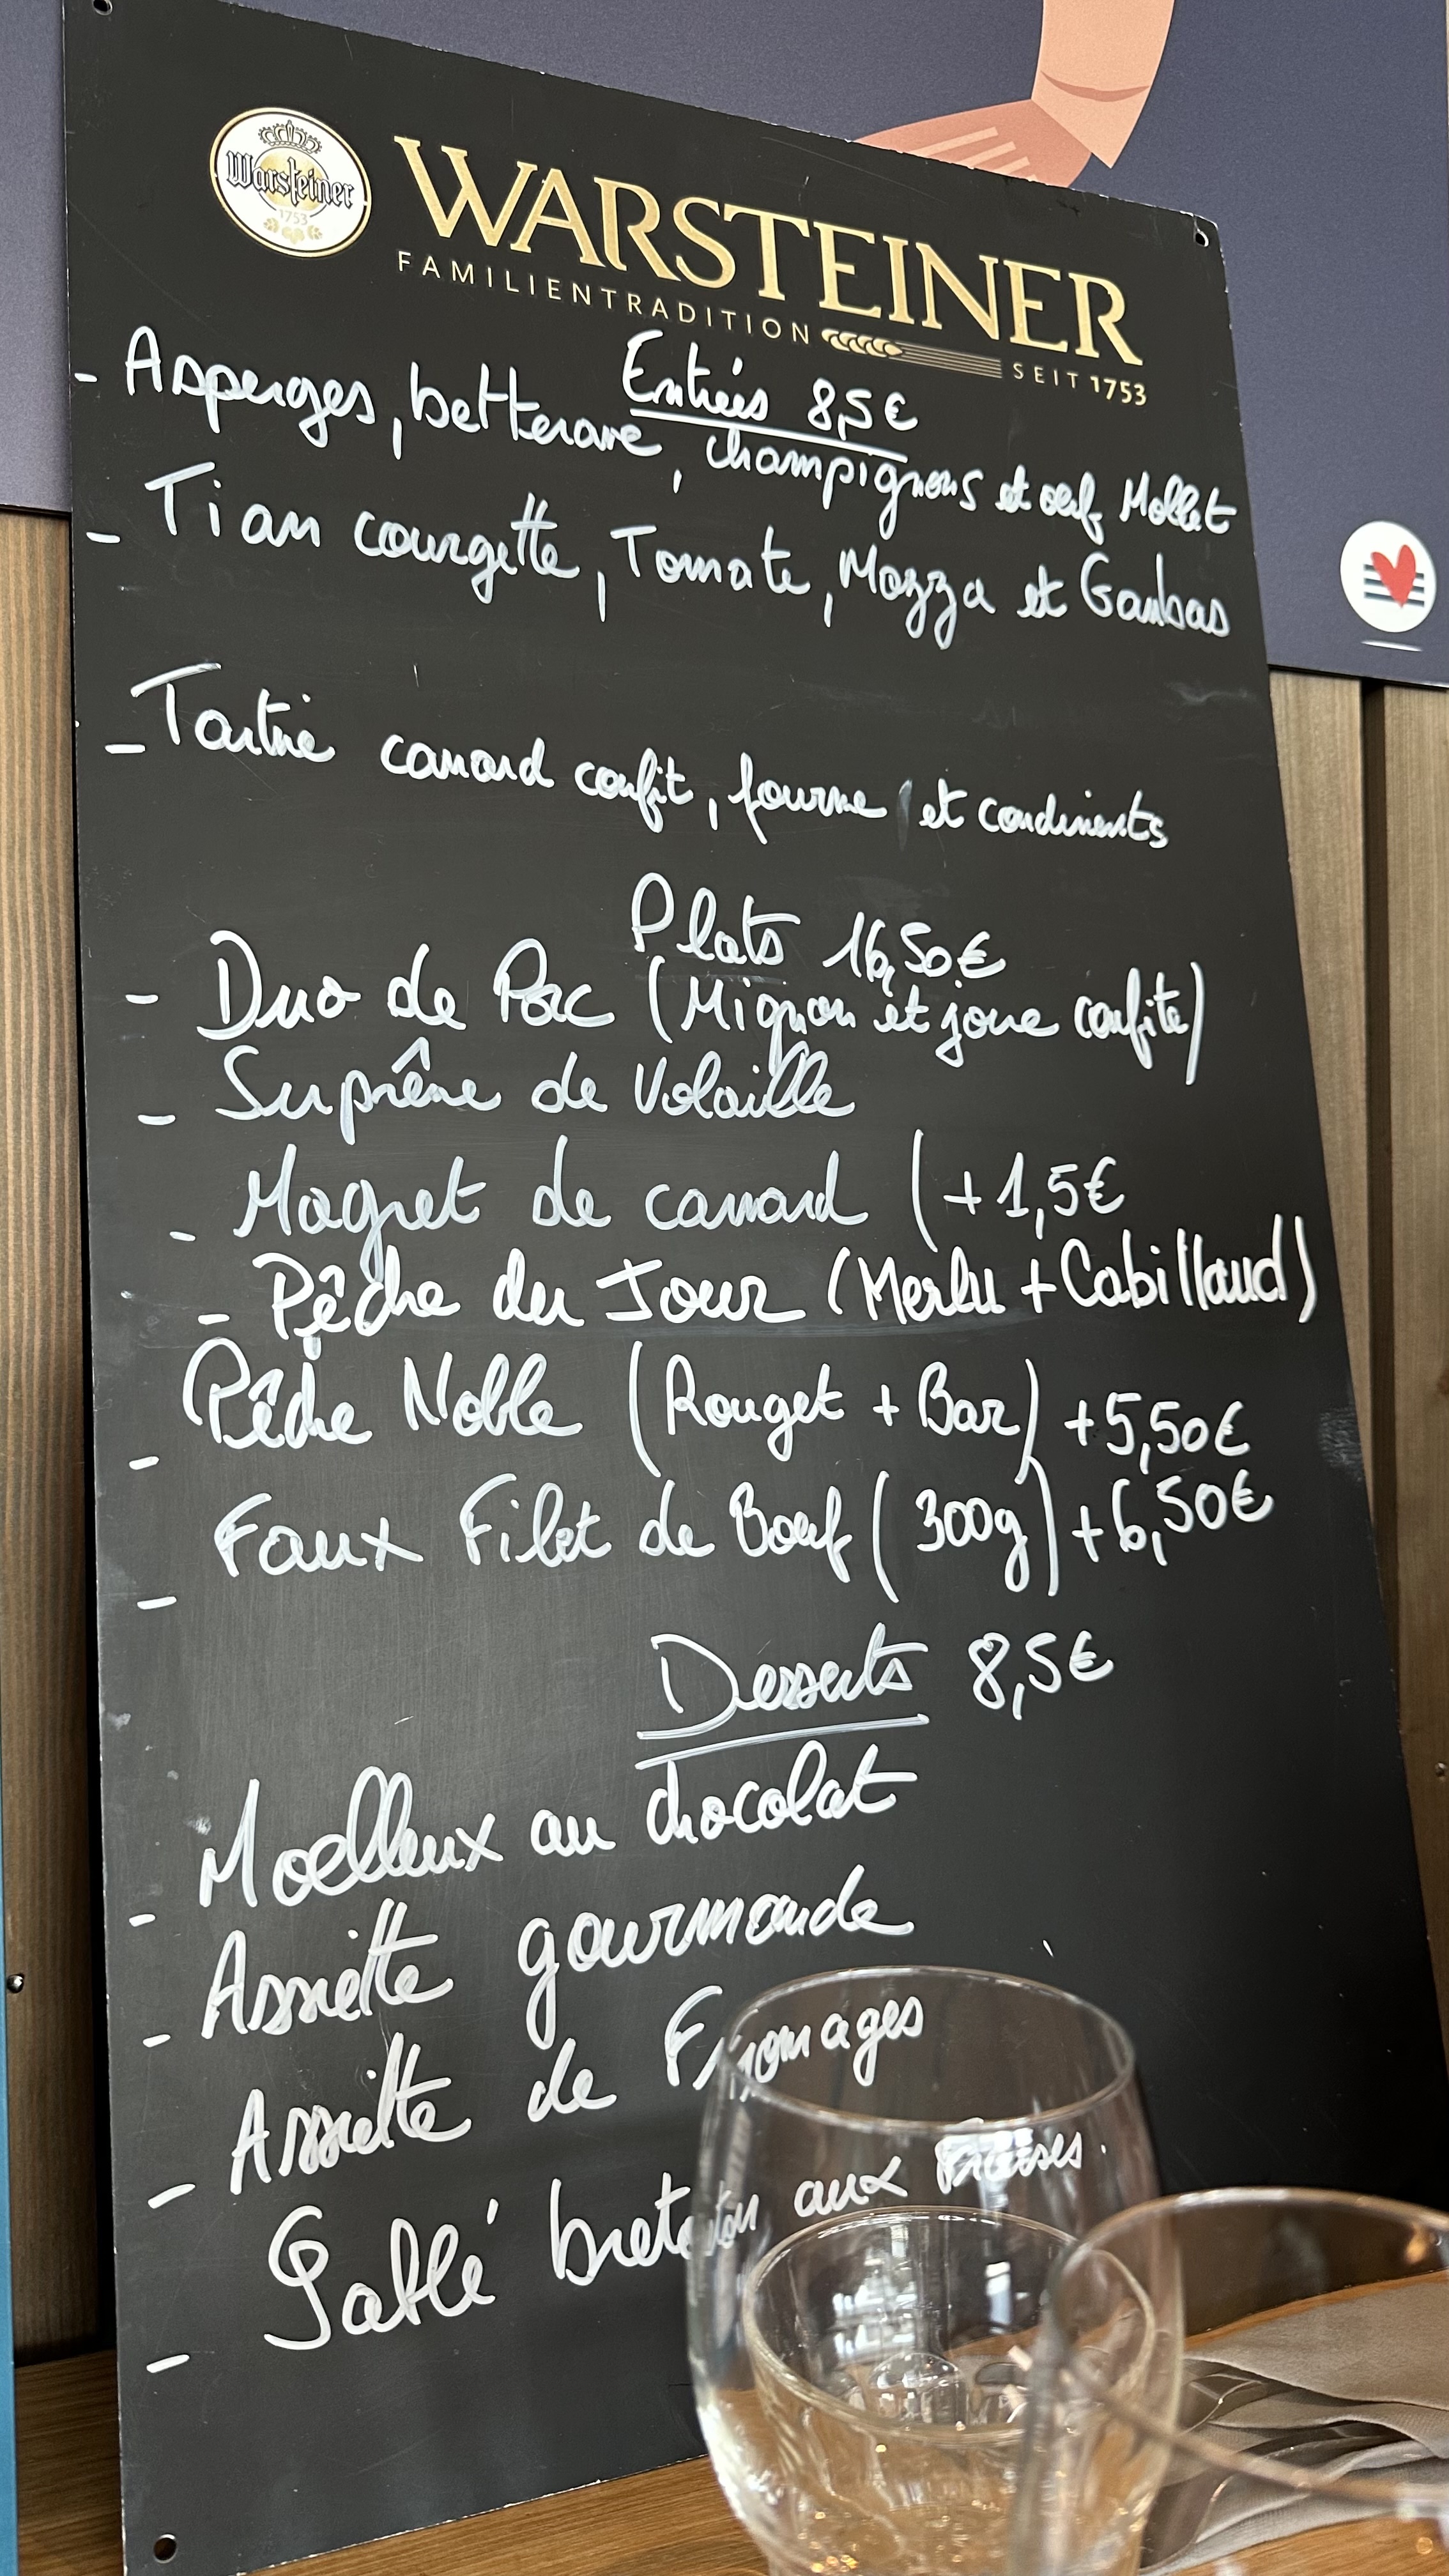 Warsteiner
1753
WARSTEINER
FAMILIENTRADITION SEIT 1753
Entrées 8,5€
- Asperges, betterave, champignons et oeuf Mollet
- Tian courgette, Tomate, Mozza et Gambas
- Tartine canard confit, fourme et condiments
Plats 16,50€
- Duo de Porc (Mignon et joue confite)
- Suprême de Volaille
- Magret de canard (+1,5€
- Pêche du Jour (Merlu + Cabillaud)
- Pêche Noble (Rouget + Bar) +5,50€
- Faux Filet de Boeuf (300g) +6,50€
Desserts 8,5€
- Moelleux au chocolat
- Assiette gourmande
- Assiette de Fromages
- Sablé breton aux Fraises.